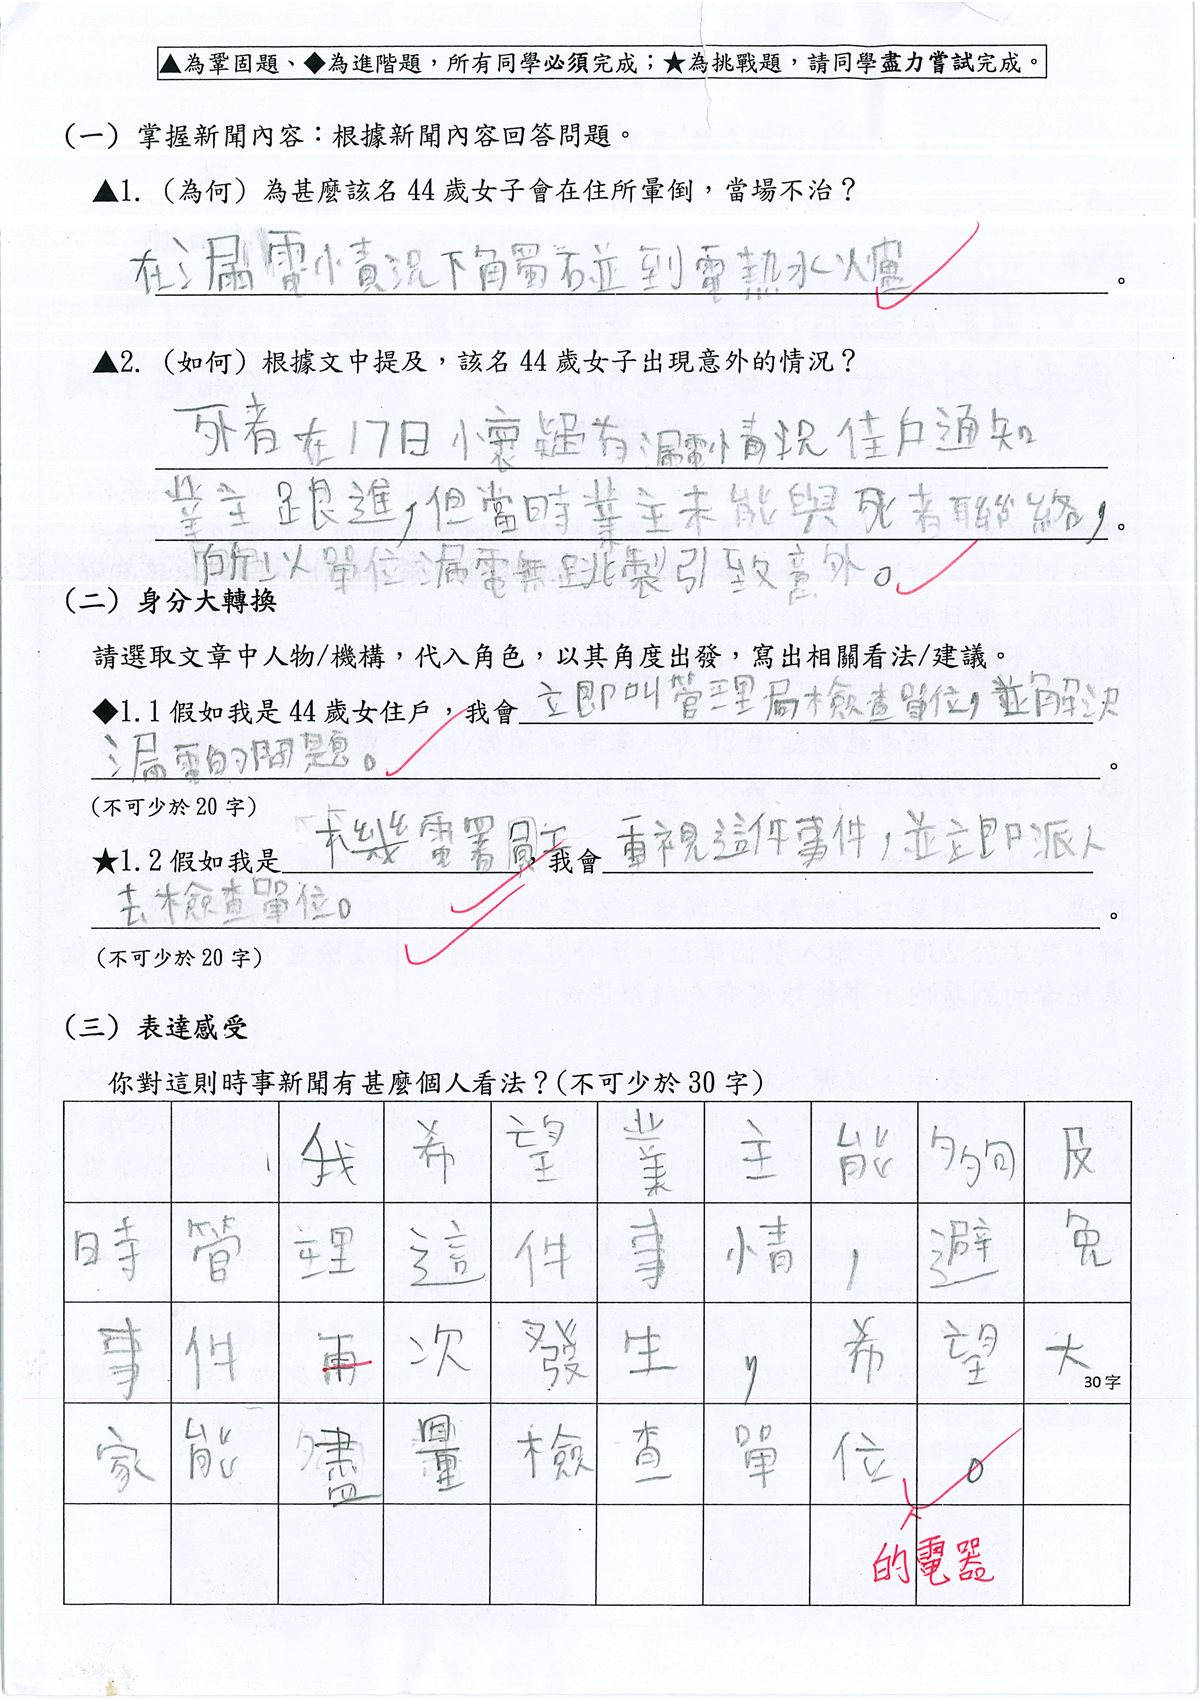 ▲為鞏固題、◆為進階題，所有同學必須完成；★為挑戰題，請同學盡力嘗試完成。
（一）掌握新聞內容：根據新聞內容回答問題。
▲1.（為何）為甚麼該名 44 歲女子會在住所暈倒，當場不治？
在漏電情況下觸碰到電熱水爐。
▲2.（如何）根據文中提及，該名 44 歲女子出現意外的情況？
死者在17日懷疑有漏電情況住戶通知
業主跟進，但當時業主未能與死者聯絡，。
所以單位漏電無跳製引致意外。
（二）身分大轉換
請選取文章中人物/機構，代入角色，以其角度出發，寫出相關看法/建議。
◆1.1 假如我是 44 歲女住戶，我會立即叫管理局檢查單位，並解決
漏電的問題。。
(不可少於 20 字)
★1.2 假如我是機電署員工，我會重視這件事件，並立即派人
去檢查單位。。
(不可少於 20 字)
（三）表達感受
你對這則時事新聞有甚麼個人看法？(不可少於 30 字)
我希望業主能夠及
時管理這件事情，避免
事件再次發生，希望大
30 字
家能盡量檢查單位。
的電器